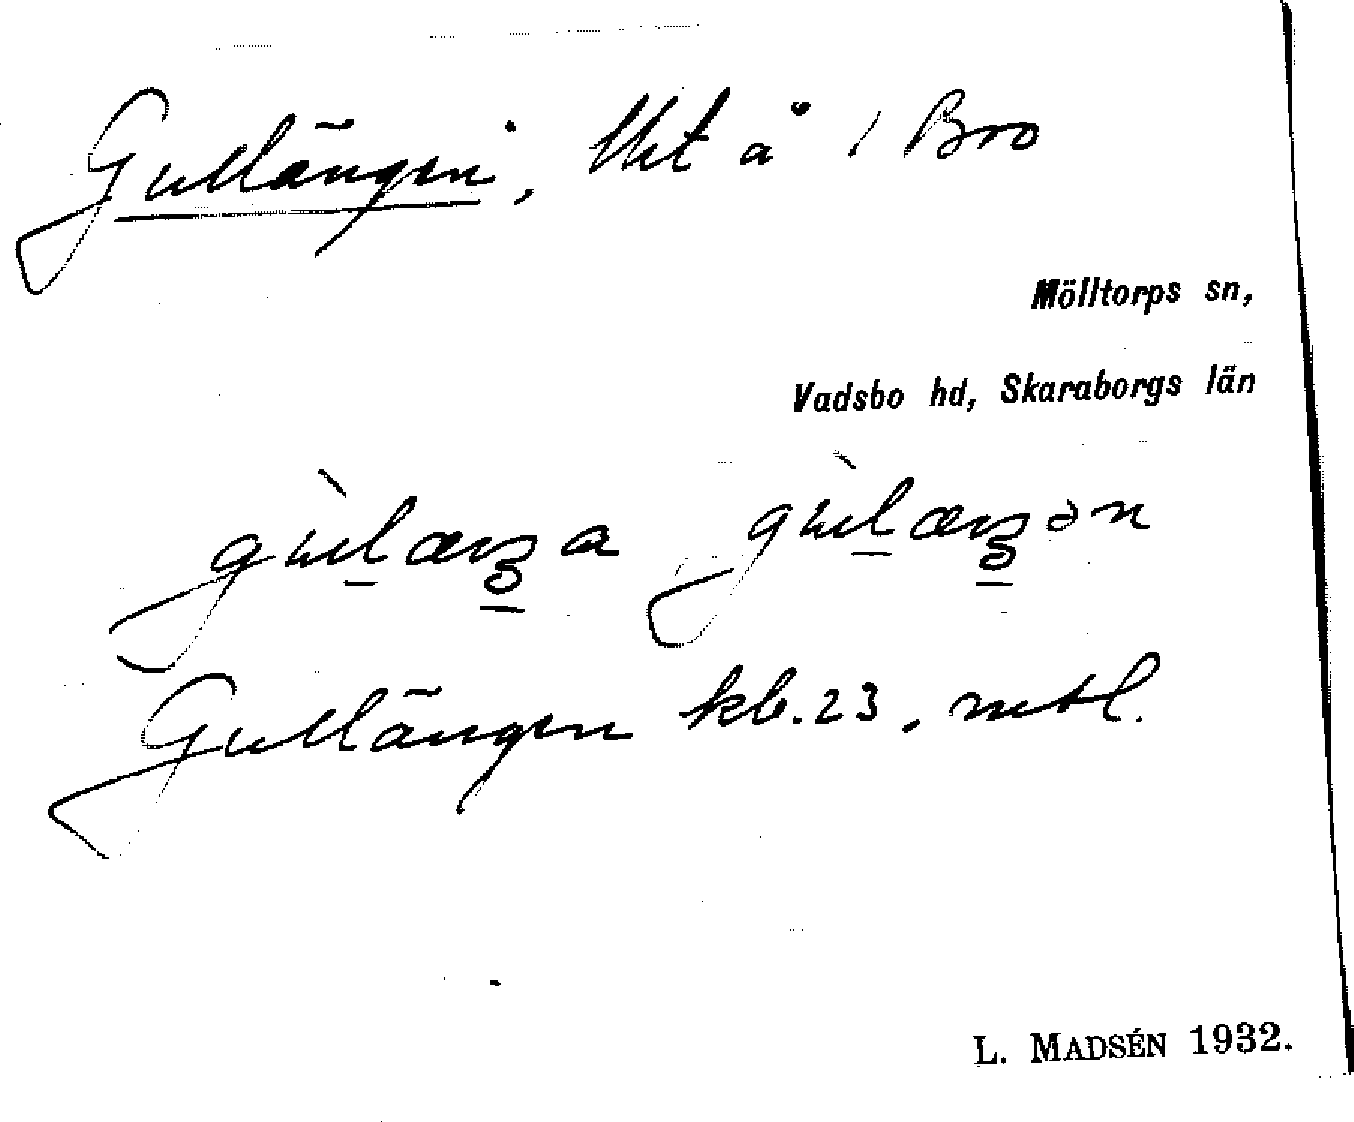 Gullängen, lht å 1 Bro
Mölltorps sn,
Vadsbo hd, Skaraborgs län
Gullängen kb. 23, mtl.
L. MADSÉN 1932.